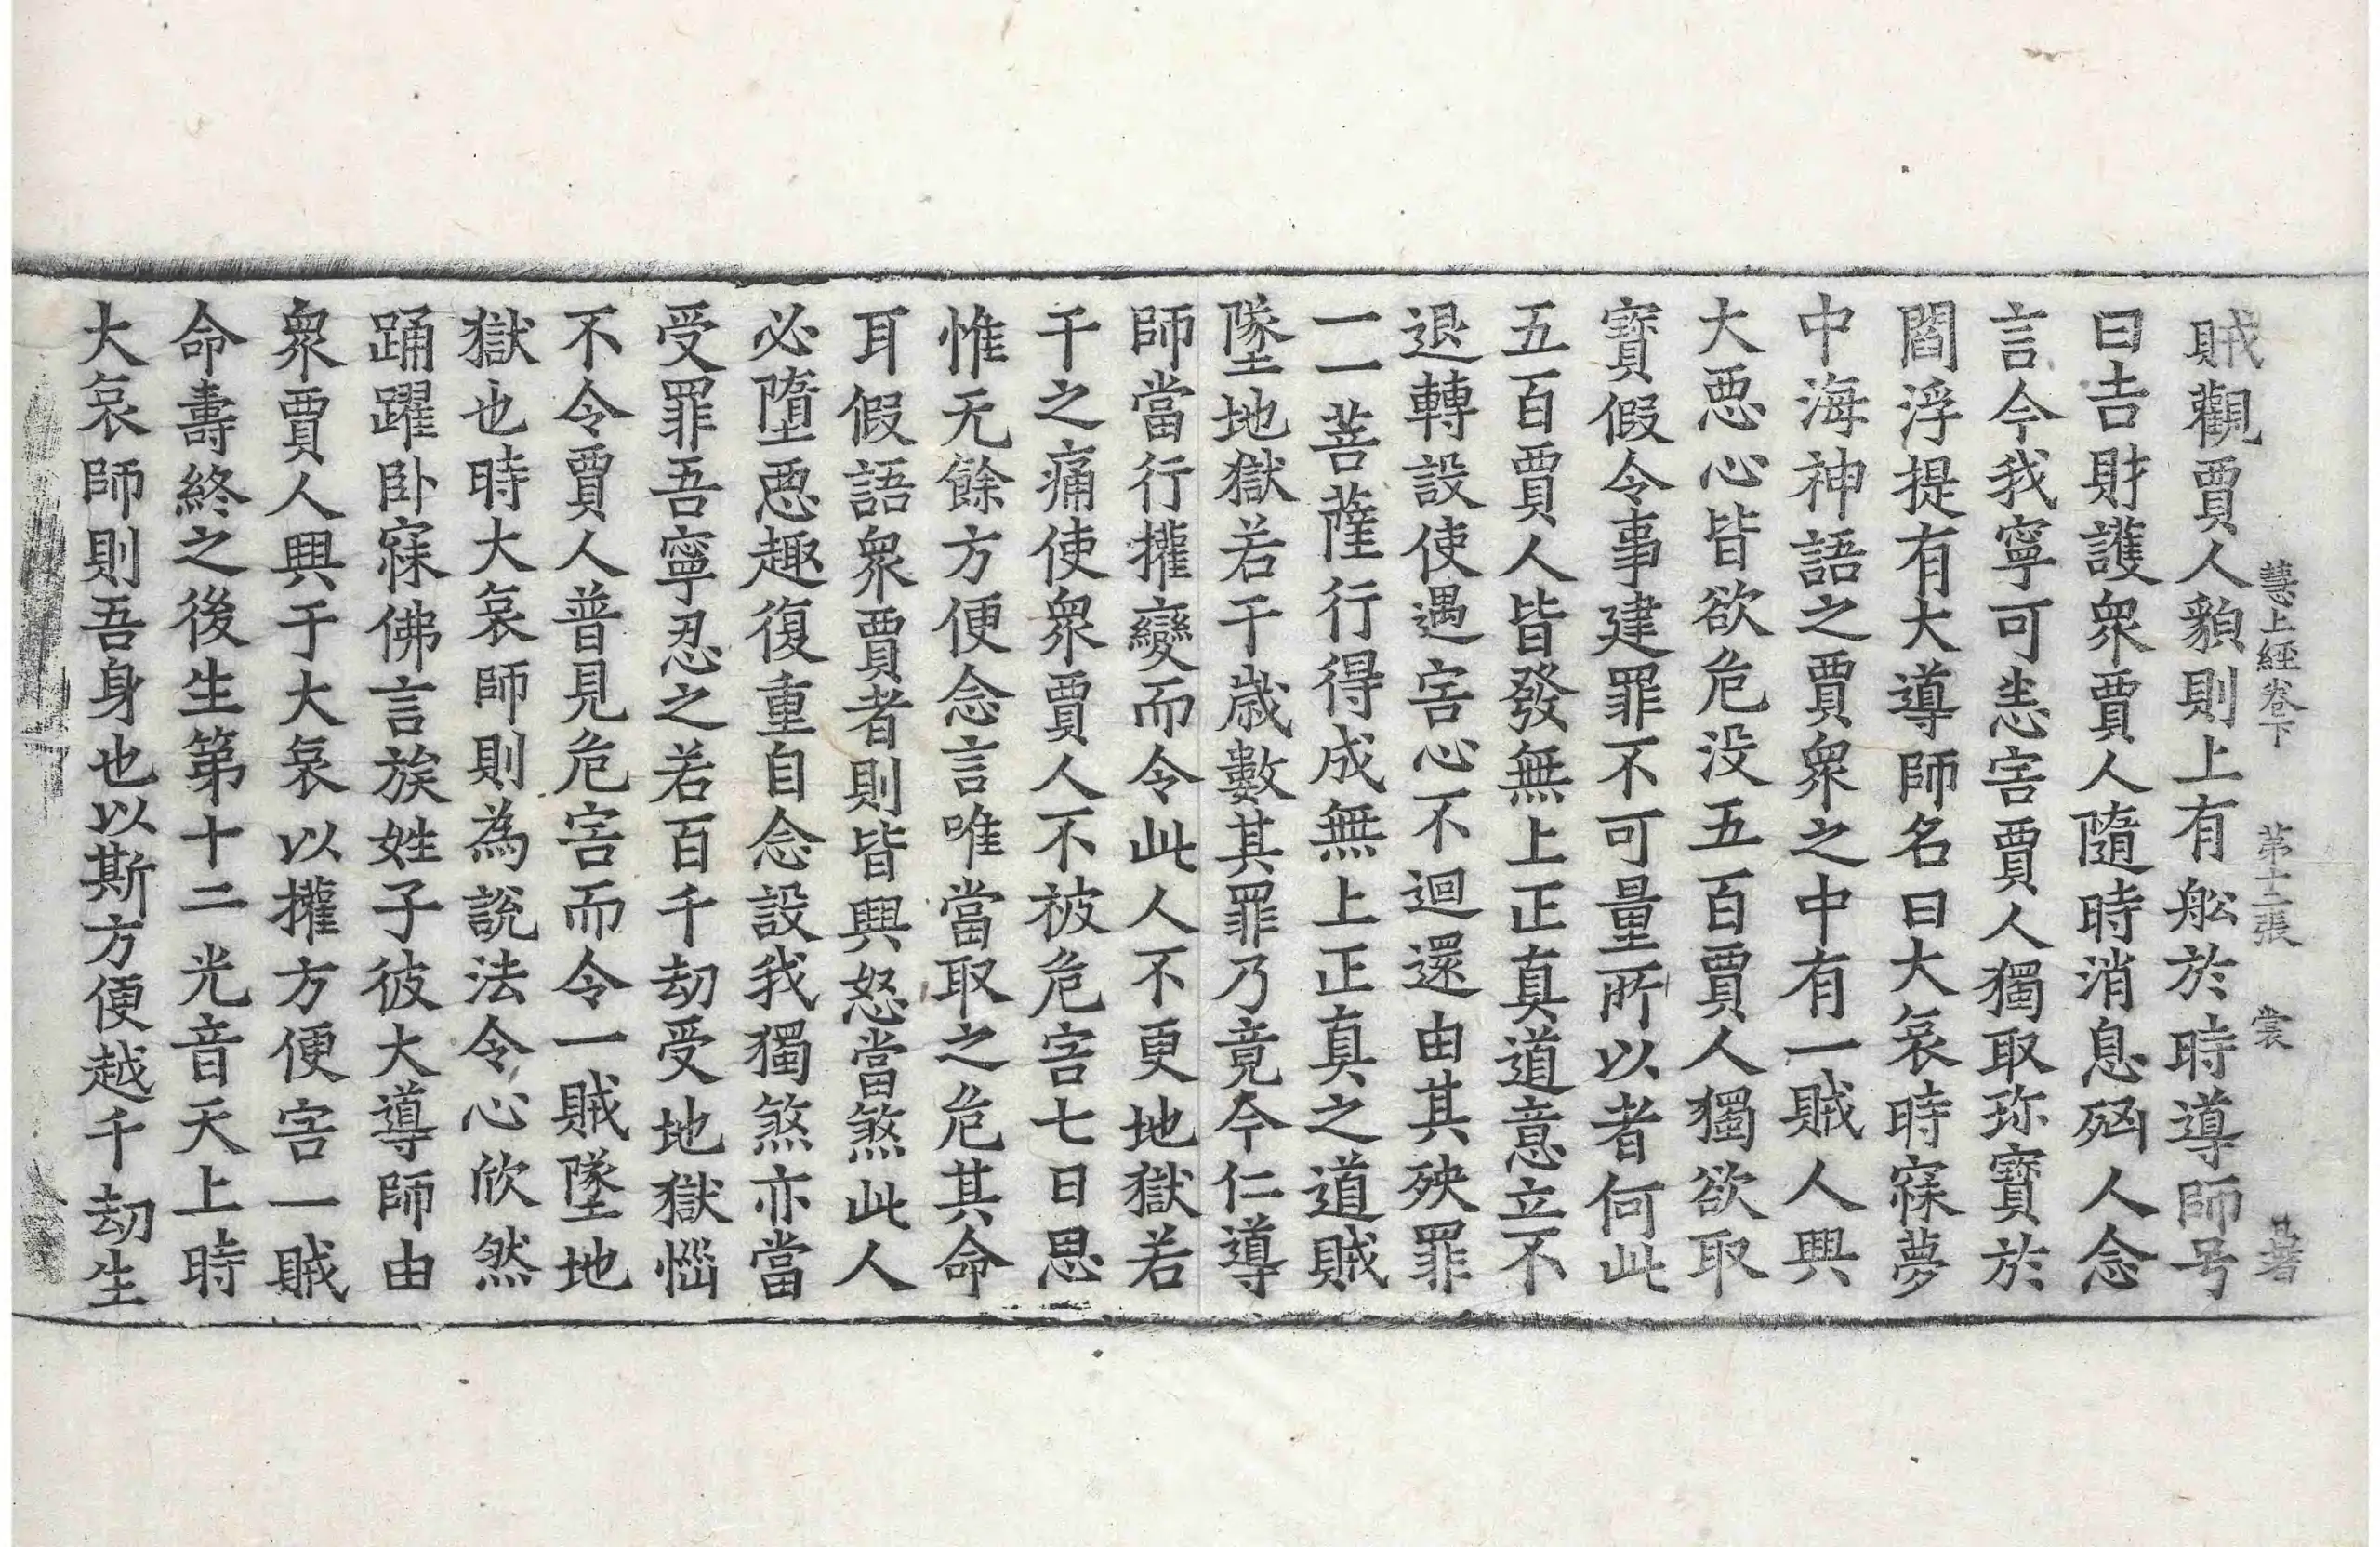 慧上經卷下 第十二張 裳
賊觀賈人貌則上有舩於時導師号
曰吉財護衆賈人隨時消息㓙人念
言今我寧可恚害賈人獨取珎寶於
閻浮提有大導師名曰大哀時寐夢
中海神語之賈衆之中有一賊人興
大惡心皆欲危没五百賈人獨欲取
寶假令事建罪不可量所以者何此
五百賈人皆發無上正真道意立不
退轉設使遇害心不迴還由其殃罪
一一菩薩行得成無上正真之道賊
墜地獄若干歲數其罪乃竟今仁導
師當行攉變而令此人不更地獄若
干之痛使衆賈人不被危害七日思
惟无餘方便念言唯當取之危其命
耳假語衆賈者則皆興怒當煞此人
必墮惡趣復重自念設我獨煞亦當
受罪吾寧忍之若百千劫受地獄惱
不令賈人普見危害而令一賊墜地
獄也時大哀師則為說法令心欣然
踊躍卧寐佛言族姓子彼大導師由
衆賈人興于大哀以攉方便害一賊
命壽終之後生第十二光音天上時
大哀師則吾身也以斯方便越千劫生